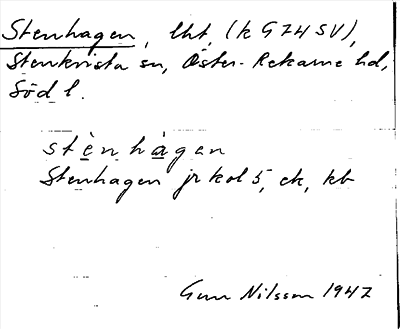 Stenhagen, lht, (k G74 SV),
Stenkvista sn, Öster-Rekarne hd,
Söd l.
stènhàgen
Stenhagen jr kol 5, ek, kb
Gun Nilsson 1947